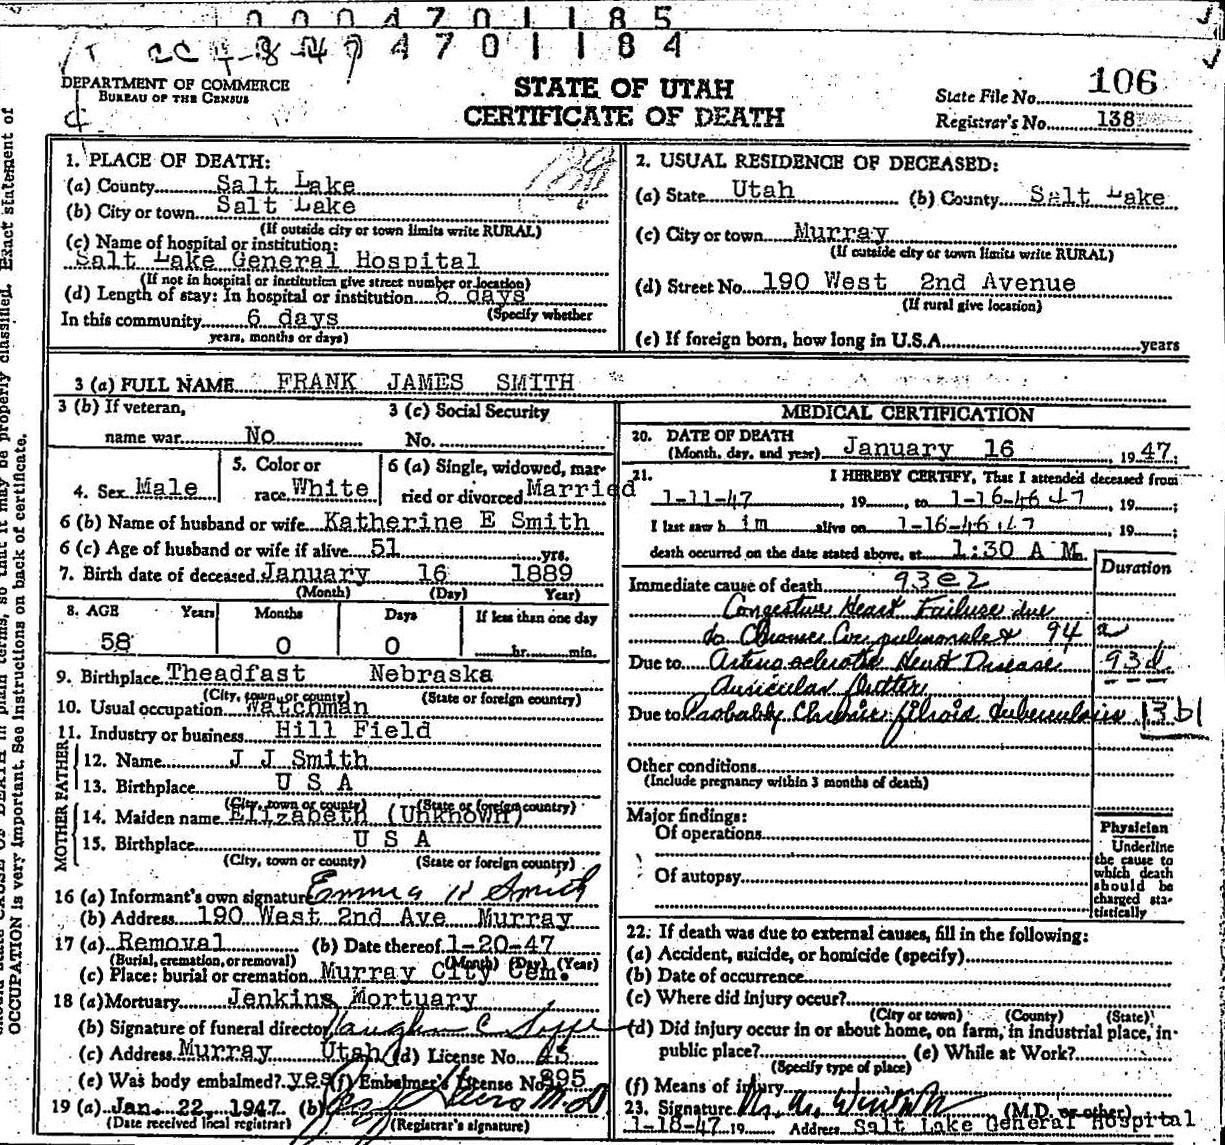 0004701185
4701184
DEPARTMENT OF COMMERCE
BUREAU OF THE CENSUS
STATE OF UTAH
CERTIFICATE OF DEATH
State File No. 106
Registrar's No. 138
1. PLACE OF DEATH:
(a) County Salt Lake
(b) City or town Salt Lake
(If outside city or town limits write RURAL)
(c) Name of hospital or institution:
Salt Lake General Hospital
(If not in hospital or institution give street number or location)
(d) Length of stay: In hospital or institution 6 days
(Specify whether
In this community 6 days
years, months or days)
2. USUAL RESIDENCE OF DECEASED:
(a) State Utah (b) County Salt Lake
(c) City or town Murray
(If outside city or town limits write RURAL)
(d) Street No. 190 West 2nd Avenue
(If rural give location)
(e) If foreign born, how long in U.S.A. years
3 (a) FULL NAME FRANK JAMES SMITH
3 (b) If veteran, 3 (c) Social Security
name war No No.
4. Sex Male
5. Color or
race White
6 (a) Single, widowed, mar-
ried or divorced Married
6 (b) Name of husband or wife Katherine E Smith
6 (c) Age of husband or wife if alive 51 yrs.
7. Birth date of deceased January 16 1889
(Month) (Day) Year)
8. AGE Years Months Days If less than one day
58 0 0 hr. min.
9. Birthplace Theadfast Nebraska
(City, town, or county) (State or foreign country)
10. Usual occupation Watchman
11. Industry or business Hill Field
FATHER
12. Name J J Smith
13. Birthplace U S A
(City, town or county) (State or foreign country)
MOTHER
14. Maiden name Elizabeth (Unknown)
15. Birthplace U S A
(City, town or county) (State or foreign country)
16 (a) Informant's own signature Emma H Smith
(b) Address 190 West 2nd Ave Murray
17 (a) Removal (b) Date thereof 1-20-47
(Burial, cremation, or removal) (Month) (Day) (Year)
(c) Place: burial or cremation Murray City Cem.
18 (a) Mortuary Jenkins Mortuary
(b) Signature of funeral director Vaughn C
(c) Address Murray Utah (d) License No. 43
(e) Was body embalmed? yes (f) Embalmer's License No. 395
19 (a) Jan. 22, 1947. (b) M.D
(Date received local registrar) (Registrar's signature)
MEDICAL CERTIFICATION
20. DATE OF DEATH
(Month, day, and year) January 16 1947;
21. I HEREBY CERTIFY, That I attended deceased from
1-11-47 19 , to 1-16-46 47 , 19 ;
I last saw h im alive on 1-16-46 47 , 19 ;
death occurred on the date stated above, at 1:30 A M.
Duration
Immediate cause of death 93e2
Congestive Heart Failure due
to Chronic Cor pulmonale & 94 a
Due to Arteriosclerotic Heart Disease 93d
Auricular flutter
Due to Probably Chronic fibroid tuberculosis 13b1
Other conditions
(Include pregnancy within 3 months of death)
Major findings:
Of operations
Of autopsy
Physician
Underline
the cause to
which death
should be
charged sta-
tistically
22. If death was due to external causes, fill in the following:
(a) Accident, suicide, or homicide (specify)
(b) Date of occurrence
(c) Where did injury occur?
(City or town) (County) (State)
(d) Did injury occur in or about home, on farm, in industrial place, in
public place? (e) While at Work?
(Specify type of place)
(f) Means of injury
23. Signature (M.D. or other)
1-18-47 19 Address Salt Lake General Hospital
Exact statement of
properly classified.
OCCUPATION is very important. See instructions on back of certificate.